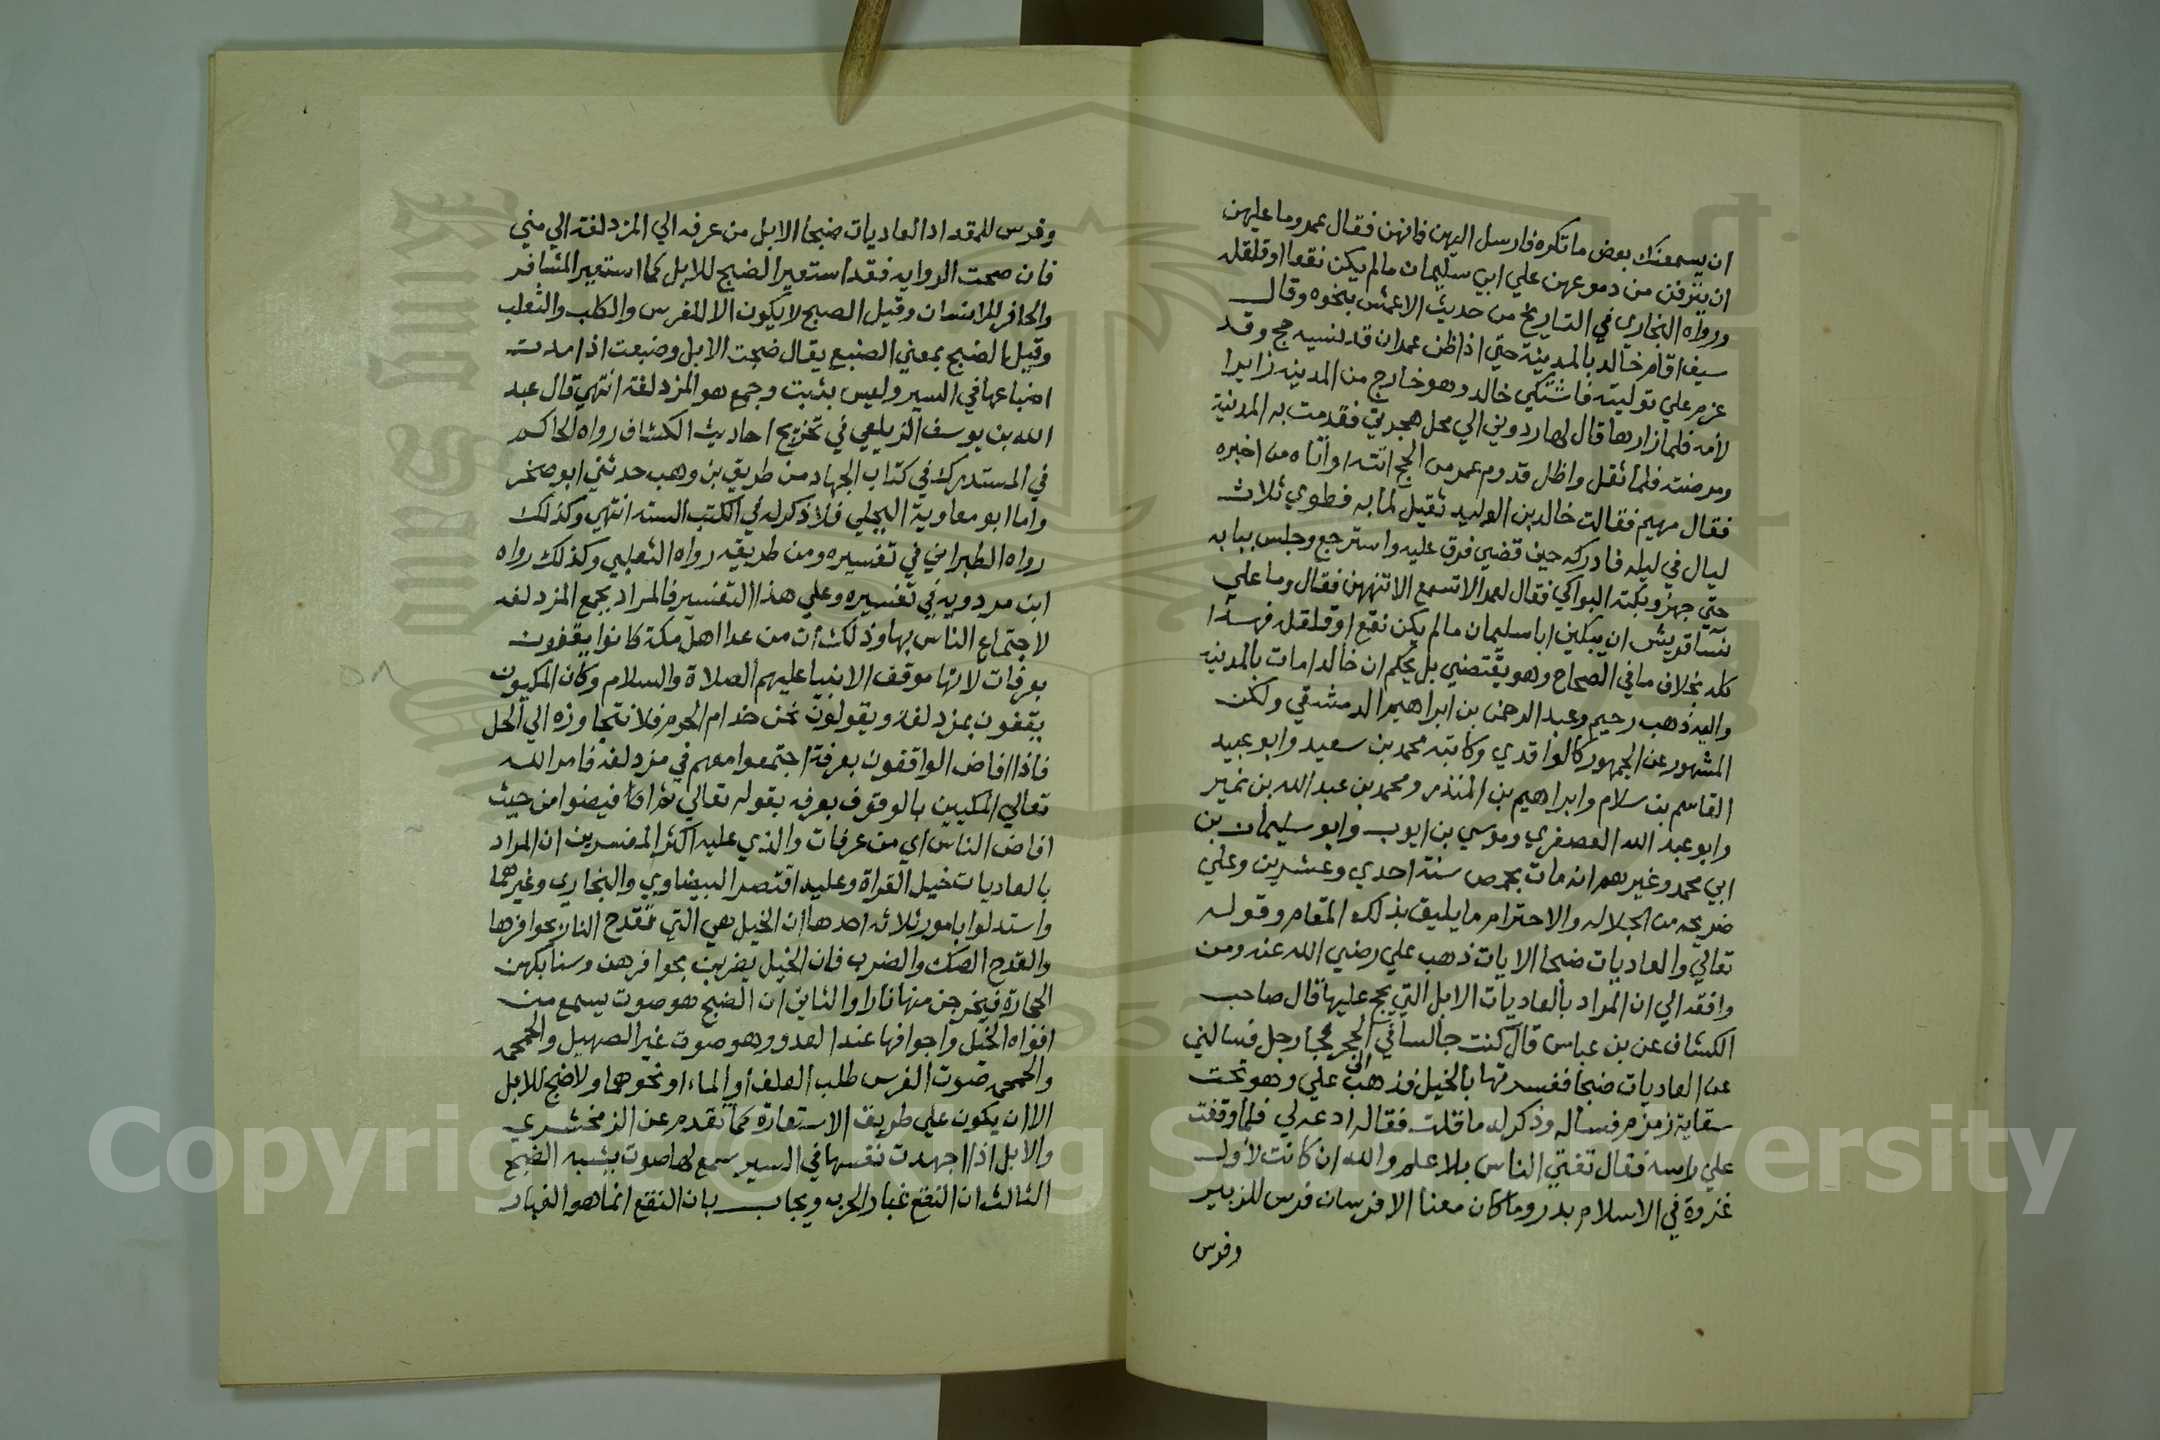 ان يسمعنك بعض ما تكره فارسل اليهن فانهن فقال عمر وما عليهن
ان ينزفن من دموعهن علي ابي سليمان مالم يكن نقعا او قلقله
ورواه البخاري في التاريخ من حديث الاعمش بنحوه وقال
سيف اقام خالد بالمدينة حتي اذا ظن عمر ان قد نسيه حج وقد
عزم علي توليته فاشتكي خالد وهو خارج من المدينه زايرا
لامه فلما زارها قال لها ردوني الي محل هجرتي فقدمت به المدينة
ومرضته فلما ثقل واظل قدوم عمر من الحج اتته او أتاه من اخبره
فقال مهيم فقالت خالد بن الوليد ثقيل لما به فطوي ثلاث
ليال في ليله فادركه حين قضي فرق عليه واسترجع وجلس ببابه
حتي جهز وبكته البواكي فقال لعمر الا تسمع الا تنههن فقال وما علي
نسآ قريش ان يبكين ابا سليمان مالم يكن نقع او قلقله فهذا
كله بخلاف ما في الصحاح وهو يقتضي بل يحكم ان خالدا مات بالمدينة
واليه ذهب رحيم وعبد الرحمن بن ابراهيم الدمشقي ولكن
المشهور عن الجمهور كالواقدي وكاتبه محمد بن سعيد وابو عبيد
القاسم بن سلام وابراهيم بن المنذر ومحمد بن عبد الله بن نمير
وابو عبد الله العصفري وموسي بن ايوب وابو سليمان بن
ابي محمد وغيرهم انه مات بحمص سنة احدي وعشرين وعلي
ضريحه من الجلاله والاحترام ما يليق بذلك المقام وقوله
تعالي والعاديات ضبحا الايات ذهب علي رضي الله عنه ومن
وافقه الي ان المراد بالعاديات الابل التي يحج عليها قال صاحب
الكشاف عن بن عباس قال كنت جالسا في الحجر فجا رجل فسالني
عن العاديات ضبحا ففسرتها بالخيل فذهب الي علي وهو تحت
سقاية زمزم فساله وذكر له ما قلت فقال ادعه لي فلما وقفت
علي راسه فقال تفتي الناس بلا علم والله ان كانت لاول
غزوة في الاسلام بدر وما كان معنا الا فرسان فرس للزبير
وفرس
وفرس للمقداد العاديات ضبحا الابل من عرفه الي المزدلفة الي مني
فان صحت الروايه فقد استعير الضبح للابل كما استعير المشافر
والحافر للانسان وقيل الصبح لا يكون الا للفرس والكلب والثعلب
وقيل الضبح بمعني الصنبع يقال ضبحت الابل وضبعت اذا مدت
اضباعها في السير وليس بثبت وجمع هو المزدلفة انتهي قال عبد
الله بن يوسف الزيلعي في تخريج احاديث الكشاف رواه الحاكم
في المستدرك في كتاب الجهاد من طريق بن وهب حدثني ابو صخر
واما ابو معاوية البجلي فلا ذكر له في الكتب السته انتهي وكذلك
رواه الطبراني في تفسيره ومن طريقه رواه الثعلبي وكذلك رواه
ابن مردويه في تفسيره وعلي هذا التفسير فالمراد بجمع المزدلفه
لاجتماع الناس بها وذلك ان من عدا اهل مكة كانوا يقفون
بعرفات لانها موقف الانبيا عليهم الصلاة والسلام وكان المكيون
يقفون بمزدلفة ويقولون نحن خدام الحرم فلا نتجاوزه الي الحل
فاذا افاض الواقفون بعرفة اجتمعوا معهم في مزدلفه فامر الله
تعالي المكيين بالوقوف بعرفه بقوله تعالي ثم افيضوا من حيث
افاض الناس اي من عرفات والذي عليه اكثر المفسرين ان المراد
بالعاديات خيل الغزاة وعليه اقتصر البيضاوي والبخاري وغيرهما
واستدلوا بامور ثلاثه احدها ان الخيل هي التي تقدح النار بحوافرها
والقدح الصك والضرب فان الخيل يضربن بحوافرهن وسنابكهن
الحجارة فيخرجن منها نارا والثاني ان الضبح هو صوت يسمع من
افواه الخيل واجوافها عند العدو وهو صوت غير الصهيل والحمحمه
والحمحمه صوت الفرس طلب العلف او الماء او نحوهما ولا ضبح للابل
الا ان يكون علي طريق الاستعارة كما تقدم عن الزمخشري
والابل اذا اجهدت نفسها في السير سمع لها صوت يشبه الضبح
الثالث ان النقع غبار الحرب ويجاب بان النقع انما هو الغبار
Copyright © King Saud University